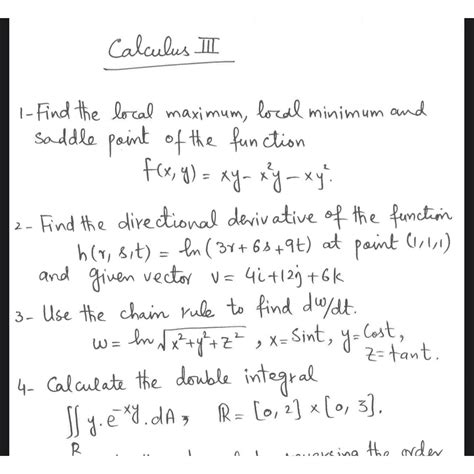 Calculus III
1- Find the local maximum, local minimum and
saddle point of the function
f(x, y) = xy - x²y - xy².
2- Find the directional derivative of the function
h(r, s, t) = ln(3r + 6s + 9t) at point (1, 1, 1)
and given vector v = 4i + 12j + 6k
3- Use the chain rule to find dw/dt.
w = ln √x² + y² + z² , x = Sint, y = Cost,
z = tant.
4- Calculate the double integral
∬ y.e^-xy.dA, R = [0, 2] × [0, 3].
R
the order